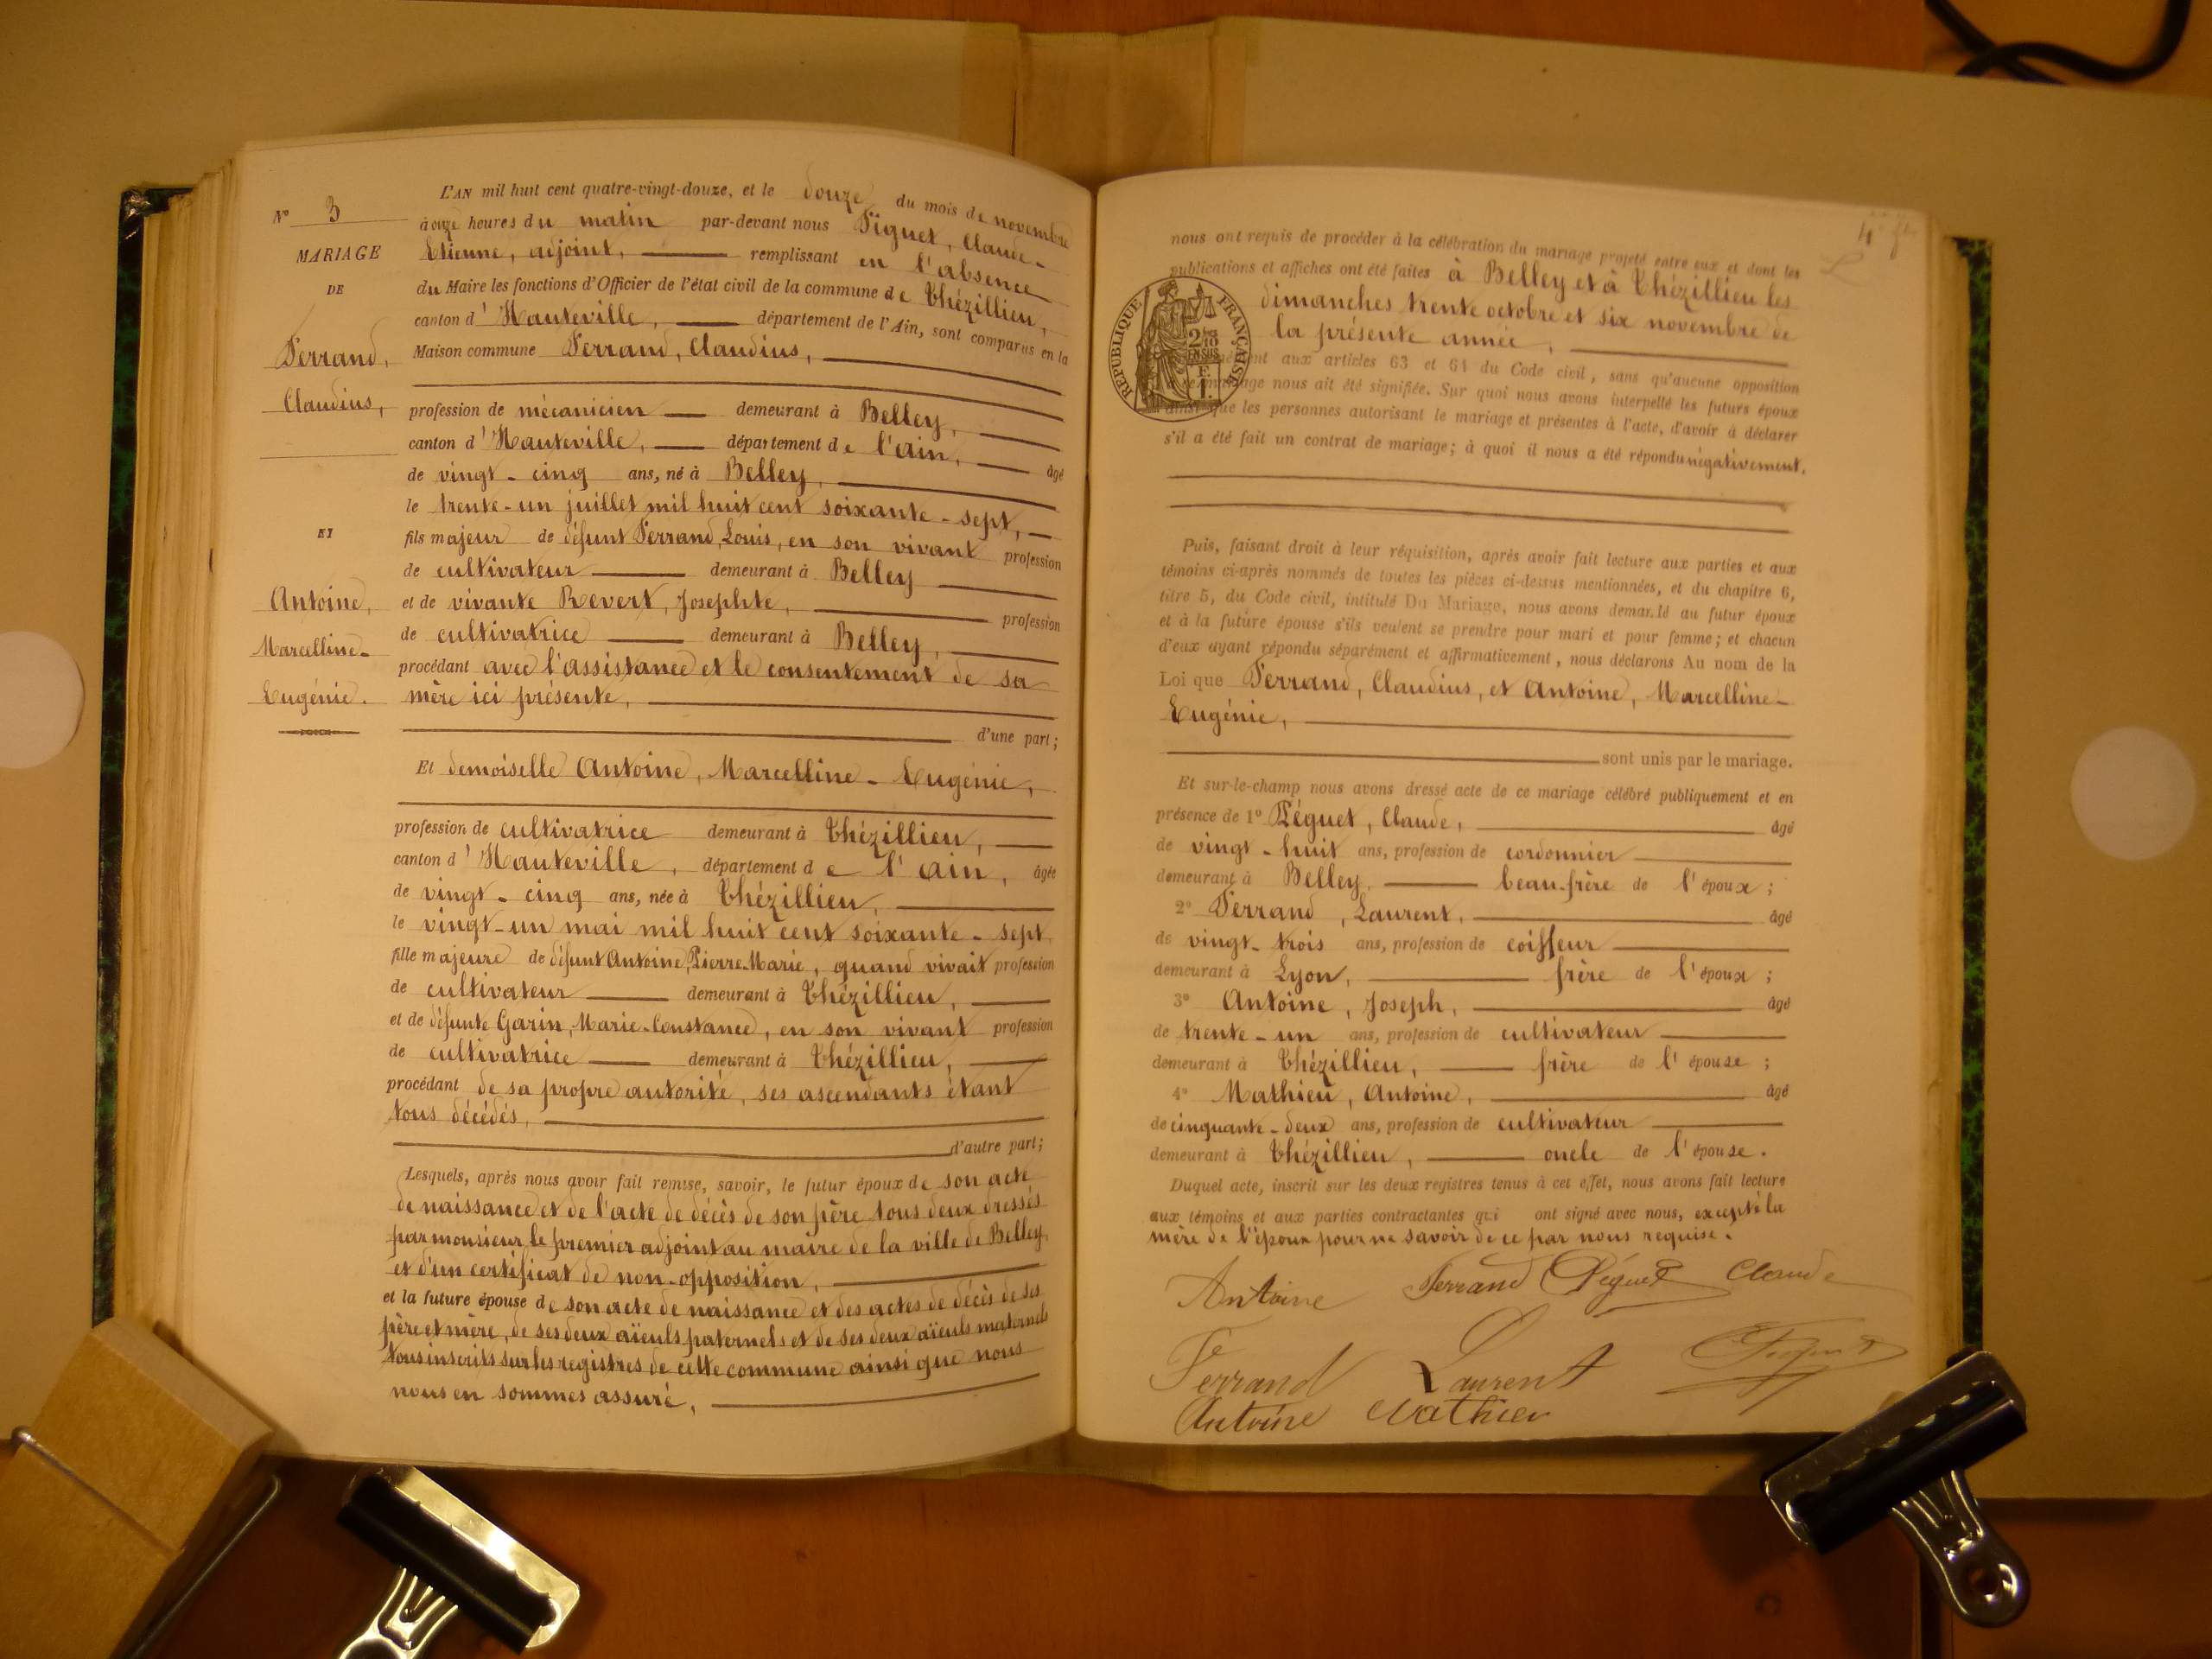 N° 3
MARIAGE
DE
Ferrand,
Claudius,
ET
Antoine,
Marcelline-
Eugénie.
L'AN mil huit cent quatre-vingt-douze, et le douze du mois de novembre
à onze heures du matin par-devant nous Piguet, Claude-
Etienne, adjoint, remplissant en l'absence
du Maire les fonctions d'Officier de l'état civil de la commune de Thézillieu,
canton d'Hauteville, département de l'Ain, sont comparus en la
Maison commune Ferrand, Claudius,
profession de mécanicien demeurant à Belley,
canton d'Hauteville, département de l'ain, âgé
de vingt-cinq ans, né à Belley,
le trente-un juillet mil huit cent soixante-sept,
fils majeur de défunt Ferrand, Louis, en son vivant profession
de cultivateur demeurant à Belley
et de vivante Revert, Josephte, profession
de cultivatrice demeurant à Belley,
procédant avec l'assistance et le consentement de sa
mère ici présente,
d'une part;
Et demoiselle Antoine, Marcelline-Eugénie,
profession de cultivatrice demeurant à Thézillieu,
canton d'Hauteville, département de l'ain, âgée
de vingt-cinq ans, née à Thézillieu,
le vingt-un mai mil huit cent soixante-sept,
fille majeure de défunt Antoine, Pierre-Marie, quand vivait profession
de cultivateur demeurant à Thézillieu,
et de défunte Garin, Marie-Constance, en son vivant profession
de cultivatrice demeurant à Thézillieu,
procédant de sa propre autorité, ses ascendants étant
tous décédés,
d'autre part;
Lesquels, après nous avoir fait remise, savoir, le futur époux de son acte
de naissance et de l'acte de décès de son père tous deux dressés
par monsieur le premier adjoint au maire de la ville de Belley
et d'un certificat de non-opposition,
et la future épouse de son acte de naissance et des actes de décès de ses
père et mère, de ses deux aïeuls paternels et de ses deux aïeuls maternels
tous inscrits sur les registres de cette commune ainsi que nous
nous en sommes assuré,
4
nous ont requis de procéder à la célébration du mariage projeté entre eux et dont les
publications et affiches ont été faites à Belley et à Thézillieu les
dimanches trente octobre et six novembre de
la présente année,
RÉPUBLIQUE FRANÇAISE
aux articles 63 et 64 du Code civil, sans qu'aucune opposition
nous ait été signifiée. Sur quoi nous avons interpellé les futurs époux
ainsi que les personnes autorisant le mariage et présentes à l'acte, d'avoir à déclarer
s'il a été fait un contrat de mariage; à quoi il nous a été répondu négativement.
Puis, faisant droit à leur réquisition, après avoir fait lecture aux parties et aux
témoins ci-après nommés de toutes les pièces ci-dessus mentionnées, et du chapitre 6,
titre 5, du Code civil, intitulé Du Mariage, nous avons demandé au futur époux
et à la future épouse s'ils veulent se prendre pour mari et pour femme; et chacun
d'eux ayant répondu séparément et affirmativement, nous déclarons Au nom de la
Loi que Ferrand, Claudius, et Antoine, Marcelline-
Eugénie,
sont unis par le mariage.
Et sur-le-champ nous avons dressé acte de ce mariage célébré publiquement et en
présence de 1° Péguet, Claude, âgé
de vingt-huit ans, profession de cordonnier
demeurant à Belley, beau-frère de l'époux;
2° Ferrand, Laurent, âgé
de vingt-trois ans, profession de coiffeur
demeurant à Lyon, frère de l'époux;
3° Antoine, Joseph, âgé
de trente-un ans, profession de cultivateur
demeurant à Thézillieu, frère de l'épouse;
4° Mathieu, Antoine, âgé
de cinquante-deux ans, profession de cultivateur
demeurant à Thézillieu, oncle de l'épouse.
Duquel acte, inscrit sur les deux registres tenus à cet effet, nous avons fait lecture
aux témoins et aux parties contractantes qui ont signé avec nous, excepté la
mère de l'époux pour ne savoir de ce par nous requise.
Antoine Ferrand Péguet Claude
Ferrand Laurent
Antoine Mathieu